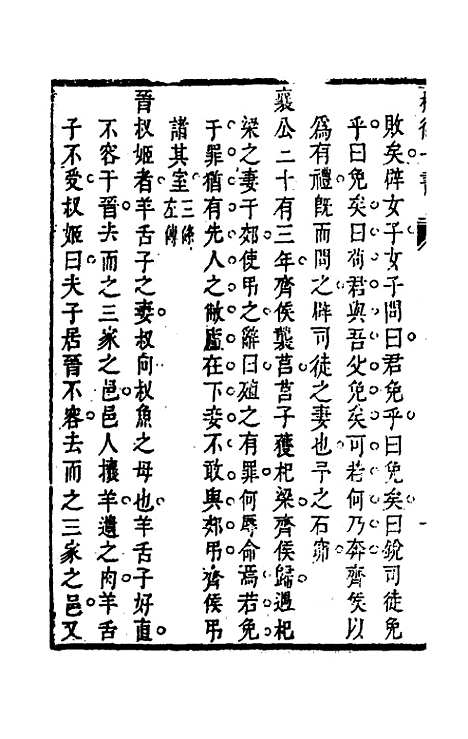 敗矣辟女子女子問曰君免乎曰免矣曰銳司徒免
乎曰免矣曰苟君與吾父免矣可若何乃奔齊矦以
爲有禮旣而問之辟司徒之妻也予之石窌
襄公二十有三年齊矦襲莒莒子獲杞梁齊矦歸遇杞
梁之妻于郊使弔之辭曰殖之有罪何辱命焉若免
于罪猶有先人之敝廬在下妾不敢與郊弔齊矦弔
諸其室三條左傳
晉叔姬者羊舌子之妻叔向叔魚之母也羊舌子好直
不容于晉去而之三家之邑邑人攘羊遺之肉羊舌
子不受叔姬曰夫子居晉不容去而之三家之邑又